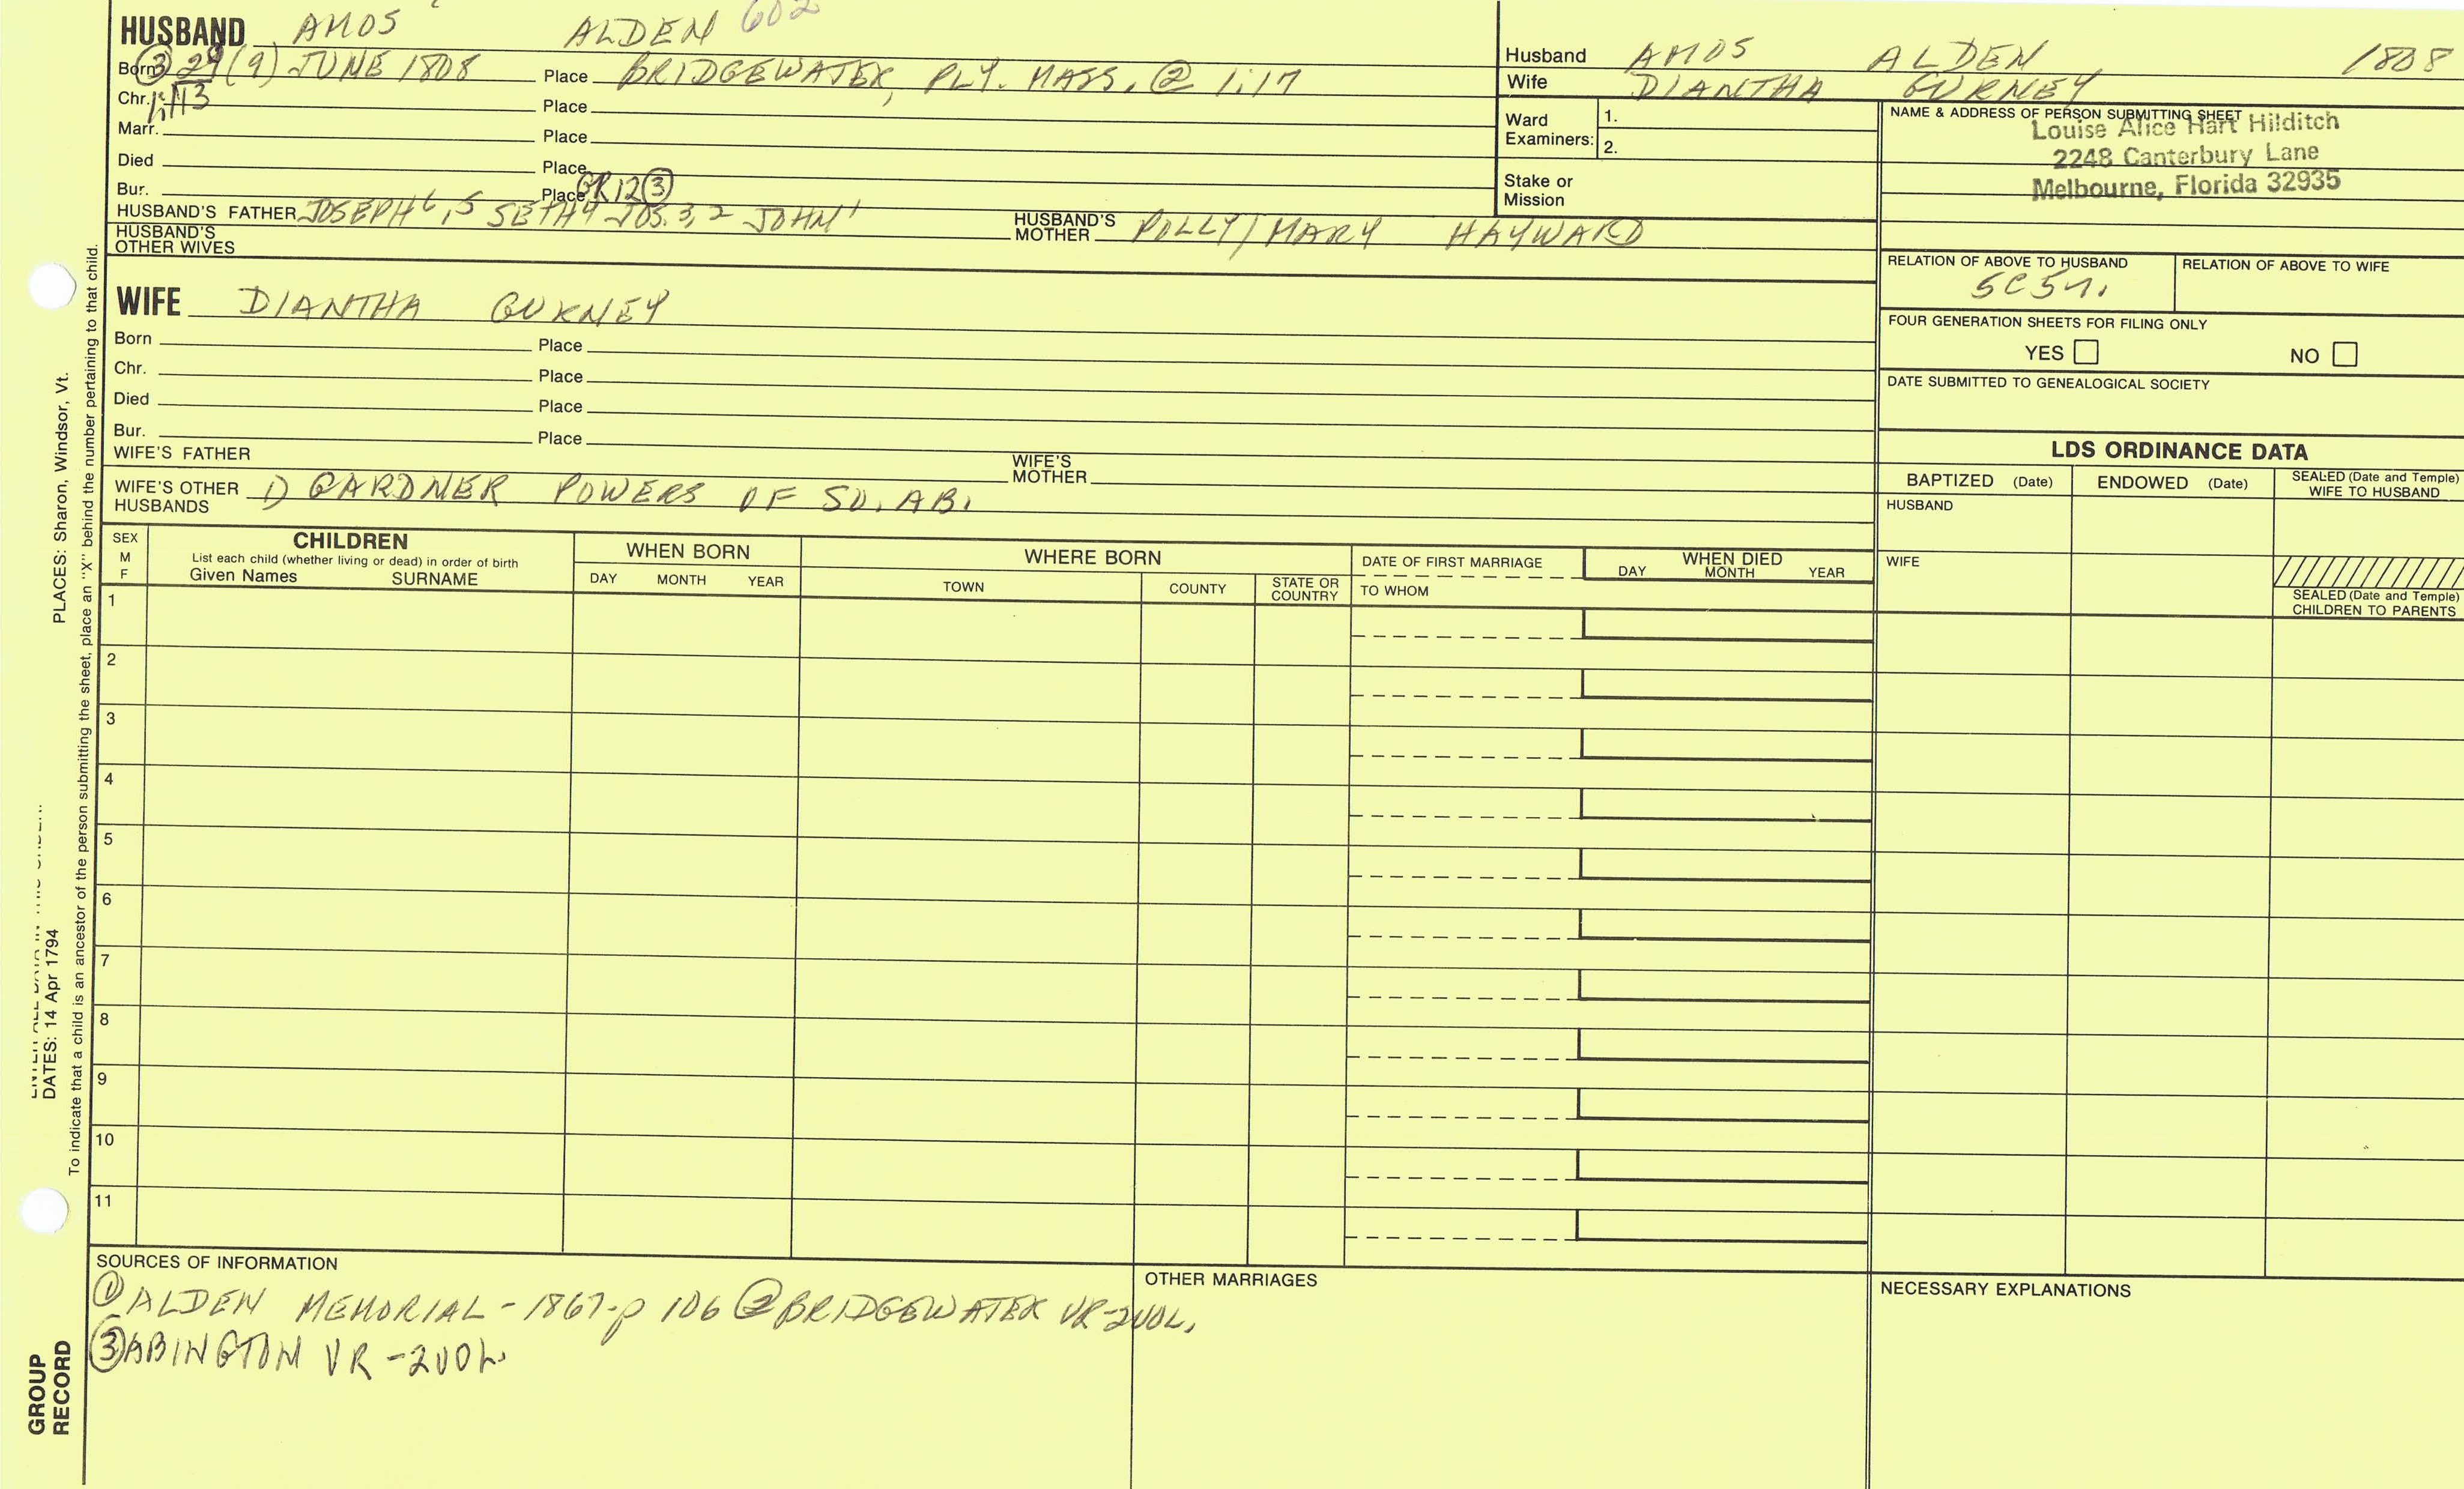 HUSBAND AMOS ALDEN 602
Born ③ 29 (9) JUNE 1808 Place BRIDGEWATER, PLY. MASS. @ 1:17
Chr. Place
Marr. Place
Died Place
Bur. Place GR12 ③
HUSBAND'S FATHER JOSEPH 6,5 SETH 4 JOS. 3,2 JOHN 1 HUSBAND'S MOTHER POLLY/MARY HAYWARD
HUSBAND'S OTHER WIVES
WIFE DIANTHA GURNEY
Born Place
Chr. Place
Died Place
Bur. Place
WIFE'S FATHER WIFE'S MOTHER
WIFE'S OTHER HUSBANDS 1) GARDNER POWERS OF SO. AB.
Husband AMOS ALDEN 1808
Wife DIANTHA GURNEY
Ward Examiners: 1.
2.
Stake or Mission
NAME & ADDRESS OF PERSON SUBMITTING SHEET
Louise Alice Hart Hilditch
2248 Canterbury Lane
Melbourne, Florida 32935
RELATION OF ABOVE TO HUSBAND RELATION OF ABOVE TO WIFE
FOUR GENERATION SHEETS FOR FILING ONLY
YES NO
DATE SUBMITTED TO GENEALOGICAL SOCIETY
LDS ORDINANCE DATA
BAPTIZED (Date) ENDOWED (Date) SEALED (Date and Temple) WIFE TO HUSBAND
HUSBAND
WIFE
SEALED (Date and Temple) CHILDREN TO PARENTS
SEX M F
CHILDREN
List each child (whether living or dead) in order of birth
Given Names SURNAME
WHEN BORN
DAY MONTH YEAR
WHERE BORN
TOWN COUNTY STATE OR COUNTRY
DATE OF FIRST MARRIAGE
TO WHOM
WHEN DIED
DAY MONTH YEAR
1
2
3
4
5
6
7
8
9
10
11
SOURCES OF INFORMATION
① ALDEN MEMORIAL - 1867 - p 106 ② BRIDGEWATER VR-2VOL.
③ ABINGTON VR -2VOL.
OTHER MARRIAGES
NECESSARY EXPLANATIONS
PLACES: Sharon, Windsor, Vt.
DATES: 14 Apr 1794
To indicate that a child is an ancestor of the person submitting the sheet, place an "X" behind the number pertaining to that child.
GROUP
RECORD